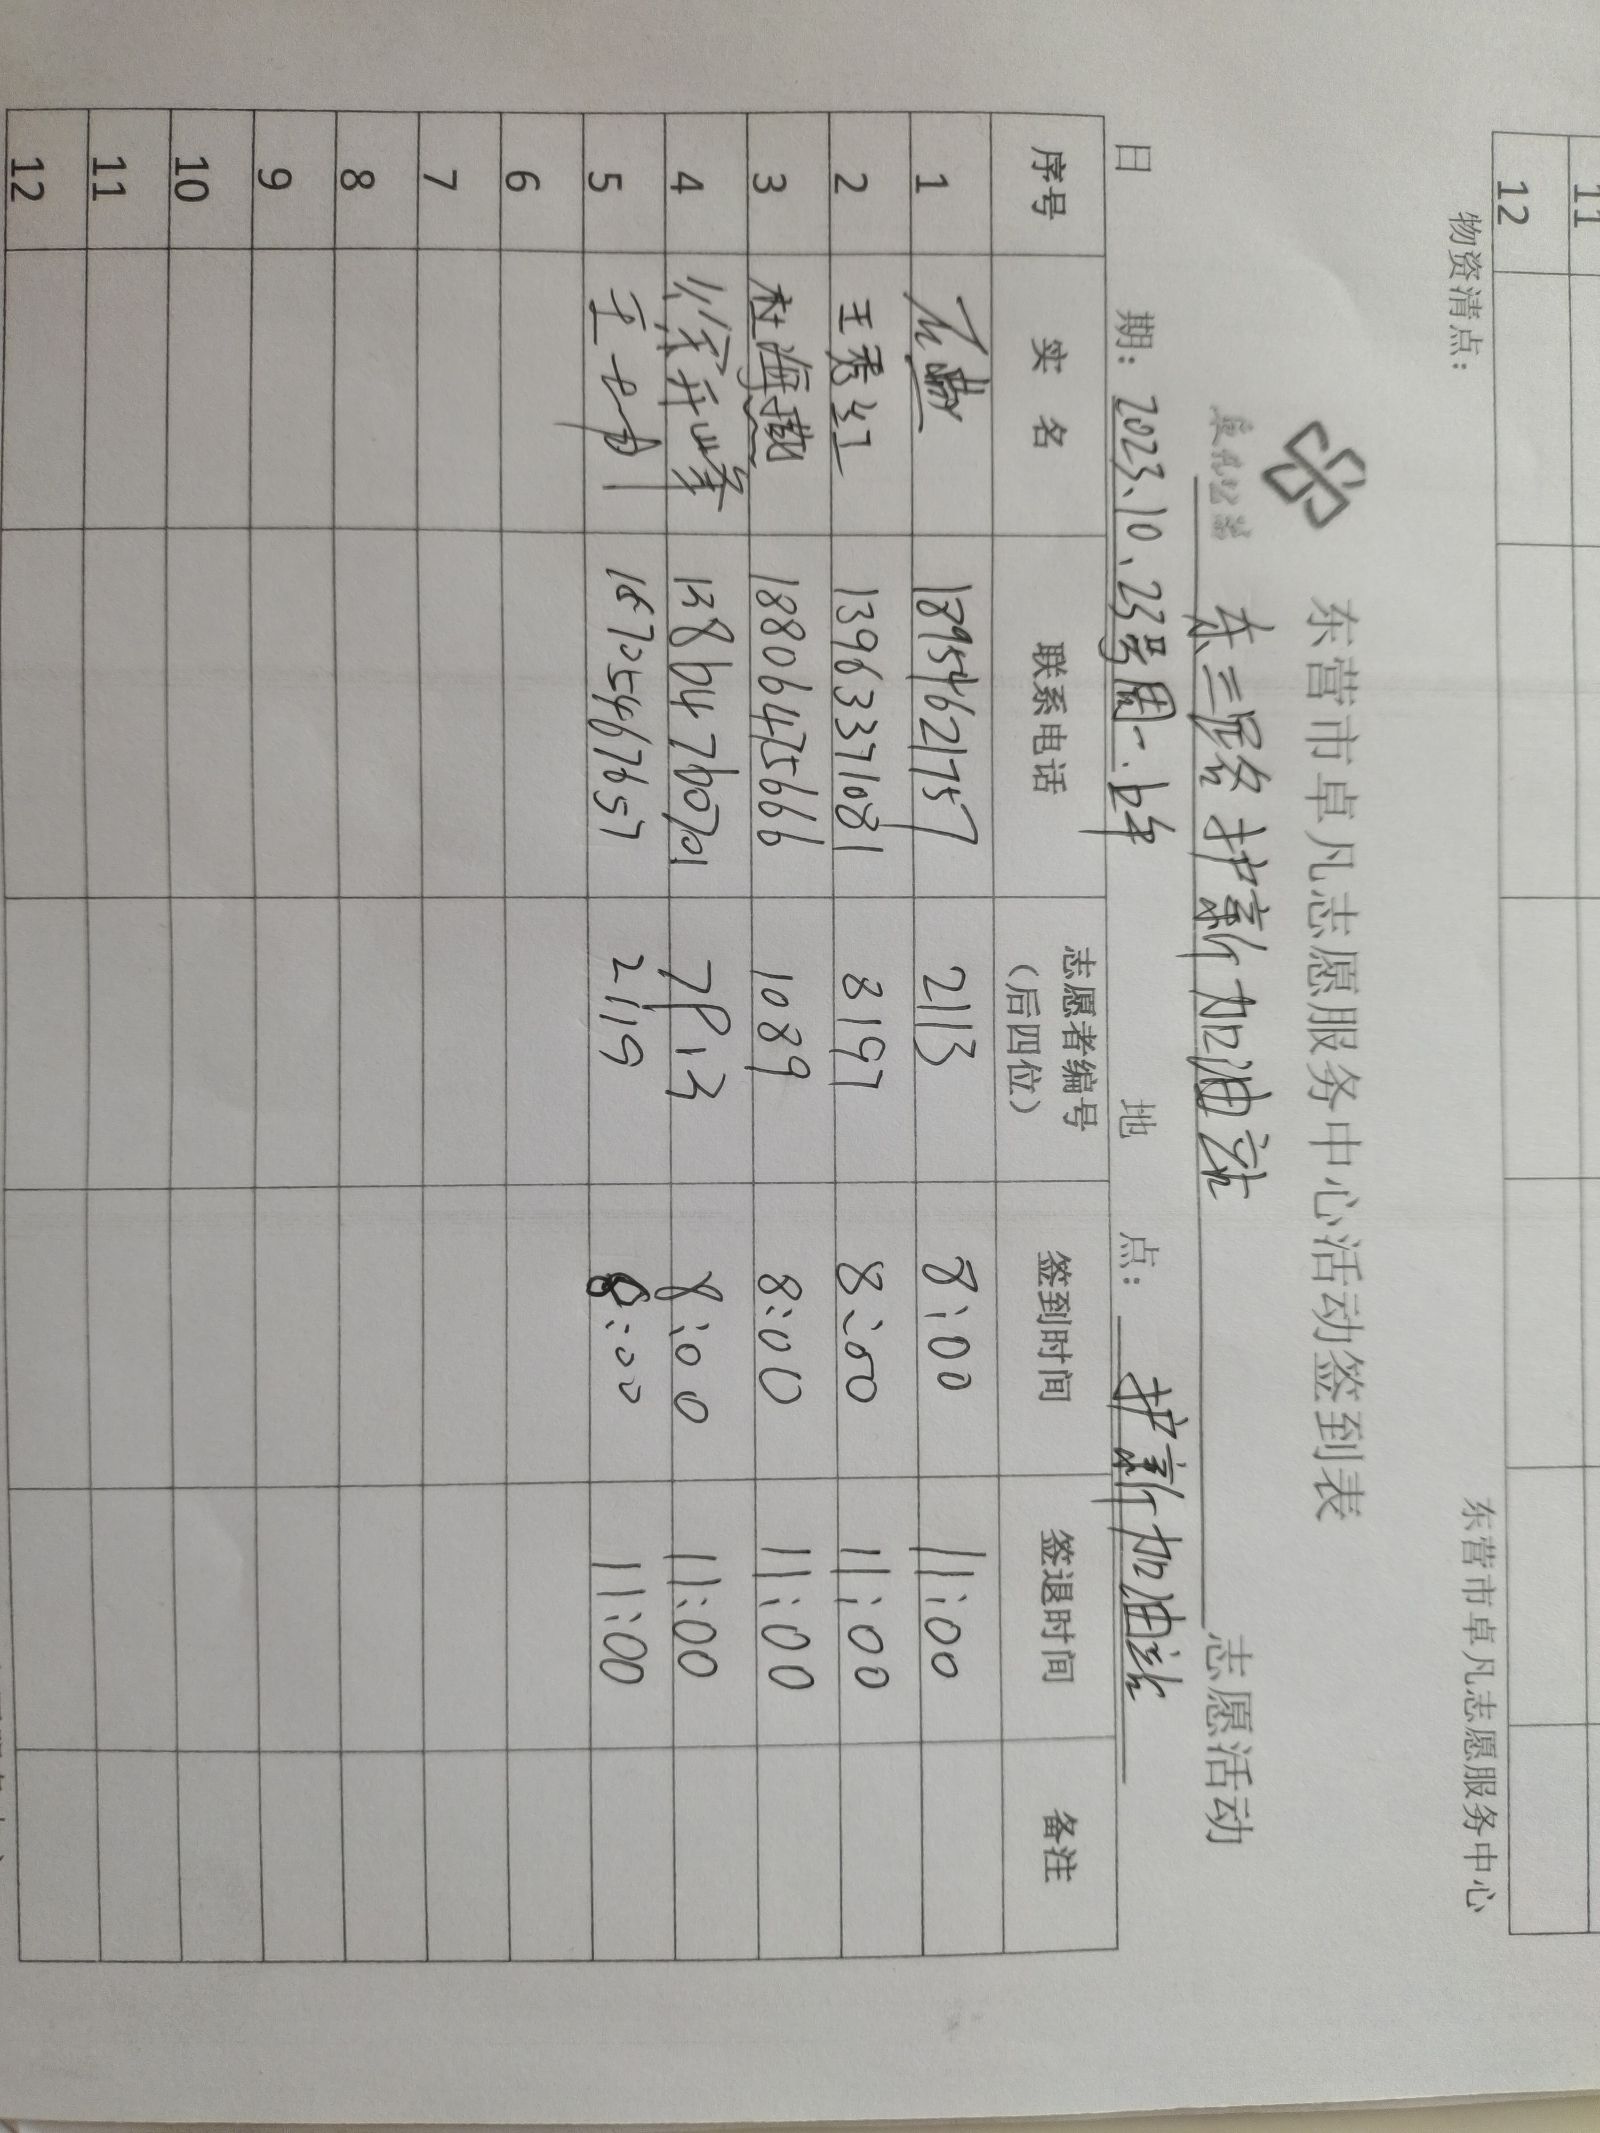 11
12
物资清点：
东营市卓凡志愿服务中心
东营市卓凡志愿服务中心活动签到表
东三路护新加油站 志愿活动
日 期：2023、10、23号周一.上午 地 点：护新加油站
序号 实 名 联系电话 志愿者编号（后四位） 签到时间 签退时间 备注
1 18954621757 2113 8:00 11:00
2 王秀红 13963371081 8197 8:00 11:00
3 杜海燕 18806475666 1089 8:00 11:00
4 13864 7813 8:00 11:00
5 2119 8:00 11:00
6
7
8
9
10
11
12